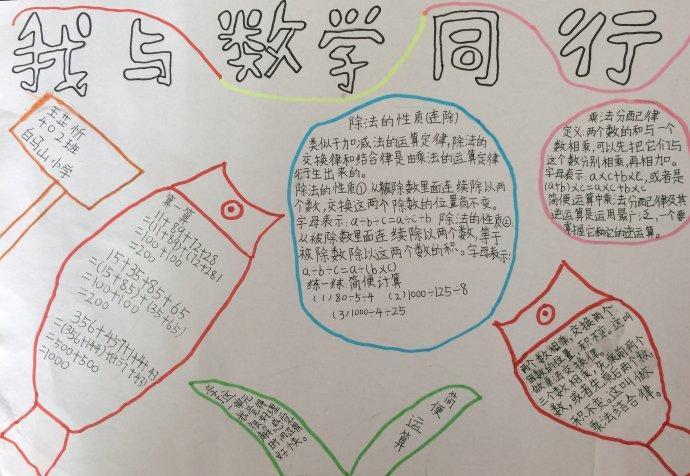 我与数学同行
王芷忻
402班
白马山小学
算一算
11+89+72+28
=(11+89)+(72+28)
=100+100
=200
15+35+85+65
=(15+85)+(35+65)
=100+100
=200
356+457+144+43
=(356+144)+(457+43)
=500+500
=1000
除法的性质(连除)
类似于加减法的运算定律,除法的
交换律和结合律是由乘法的运算定律
衍生出来的。
除法的性质①,从被除数里面连续除以两
个数,交换这两个除数的位置商不变。
字母表示:a÷b÷c=a÷c÷b 除法的性质②:
从被除数里面连续除以两个数,等于
被除数除以这两个数的积。字母表示:
a÷b÷c=a÷(b×c)
练一练:简便计算
(1)80÷5÷4 (2)1000÷125÷8
(3)1000÷4÷25
乘法分配律
定义:两个数的和与一个
数相乘,可以先把它们与
这个数分别相乘,再相加。
字母表示:a×c+b×c,或者是
(a+b)×c=a×c+b×c
简便运算中乘法分配律及其
逆运算是运用最广泛,一个要
掌握它和它的逆运算。
两个数相乘,交换两个
因数的位置,积不变。这叫
做乘法交换律。
三个数相乘,先乘前两个
数,或者先乘后两个数,
积不变。这叫做
乘法结合律。
简便
运算
好快。